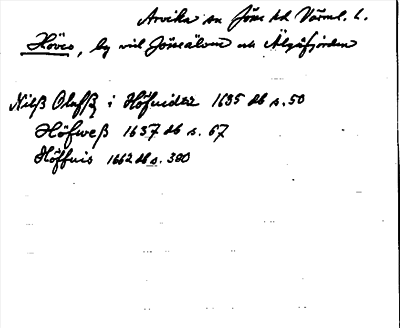 Arvika sn Jöss hd Värml. l.
Hövcs, by vid Jössälven nh Älgåfjorden
Nilß Olufß i Höfuidez 1635 db s. 50
Höfweß 1637 db s. 67
Höffuis 1662 db s. 380